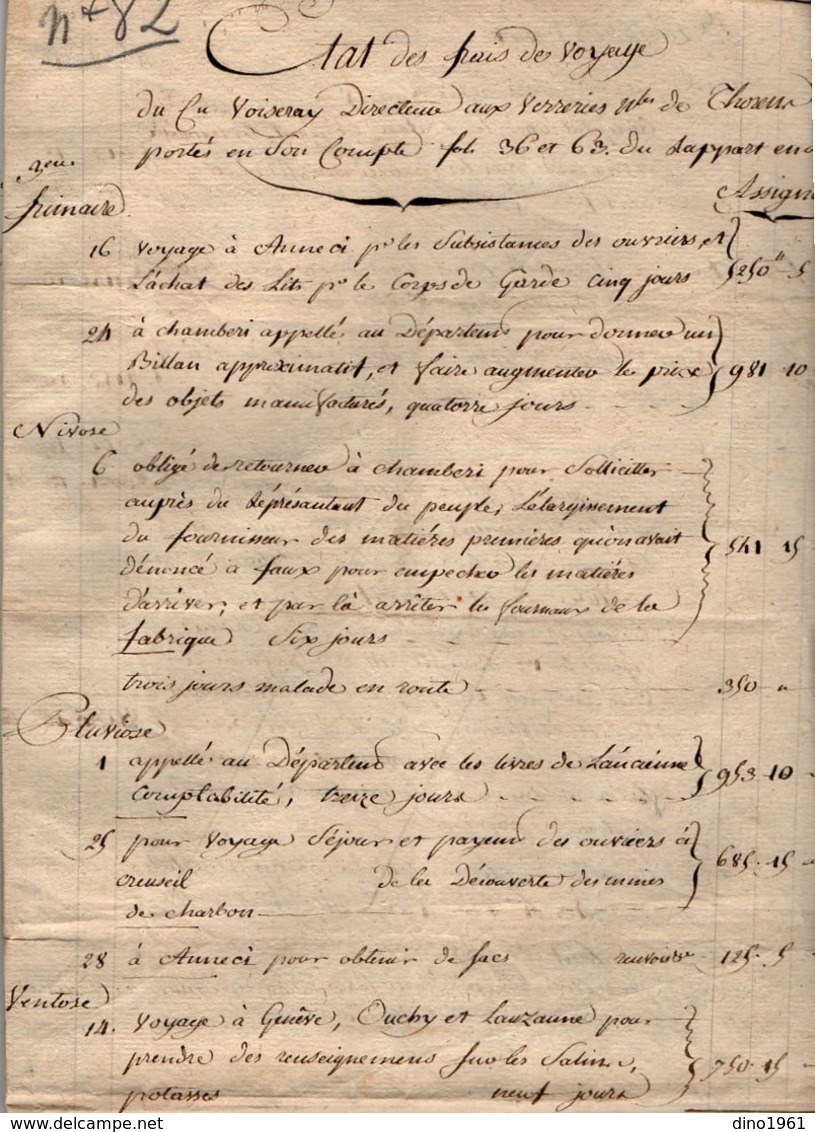 nº 82
Etat des frais de voyage
du Cn Voiseray Directeur aux Verreries nles de Thorens
portés en Son Compte fol. 36 et 63. du Rapport en
Assign
frimaire
16 voyage à Anneci pr les Subsistances des ouvriers, et
L'achat des Lits pr le Corps de Garde Cinq jours 5250 " 5
24 à chamberi appellé au Départemt pour donner un
Billan approximatif, et faire augmenter le prix 981 10
des objets manufacturés, quatorze jours
Nivose
6 obligé de retourner à chamberi pour Solliciter
auprès du Réprésantant du peuple, L'élargissement
du fournisseur des matiéres premières qu'on avait 541 15
dénoncé à faux pour empecher les matiéres
d'arriver, et par là arrêter les fourneaux de la
fabrique Six jours
trois jours malade en route 350 "
Pluviose
1 appellé au Départemt avec les livres de L'anciènne 953 10
Comptabilité, treize jours
25 pour voyage Séjour et payemt des ouvriers à 685 15
creuseil de la Découverte des mines
de charbon
28 à Anneci pour obtenir de sacs 125 5
Ventose
14. voyage à Genêve, Ouchy et Lauzanne pour
prendre des renseignemens sur les Salins, 750 15
potasses neuf jours
dino1961